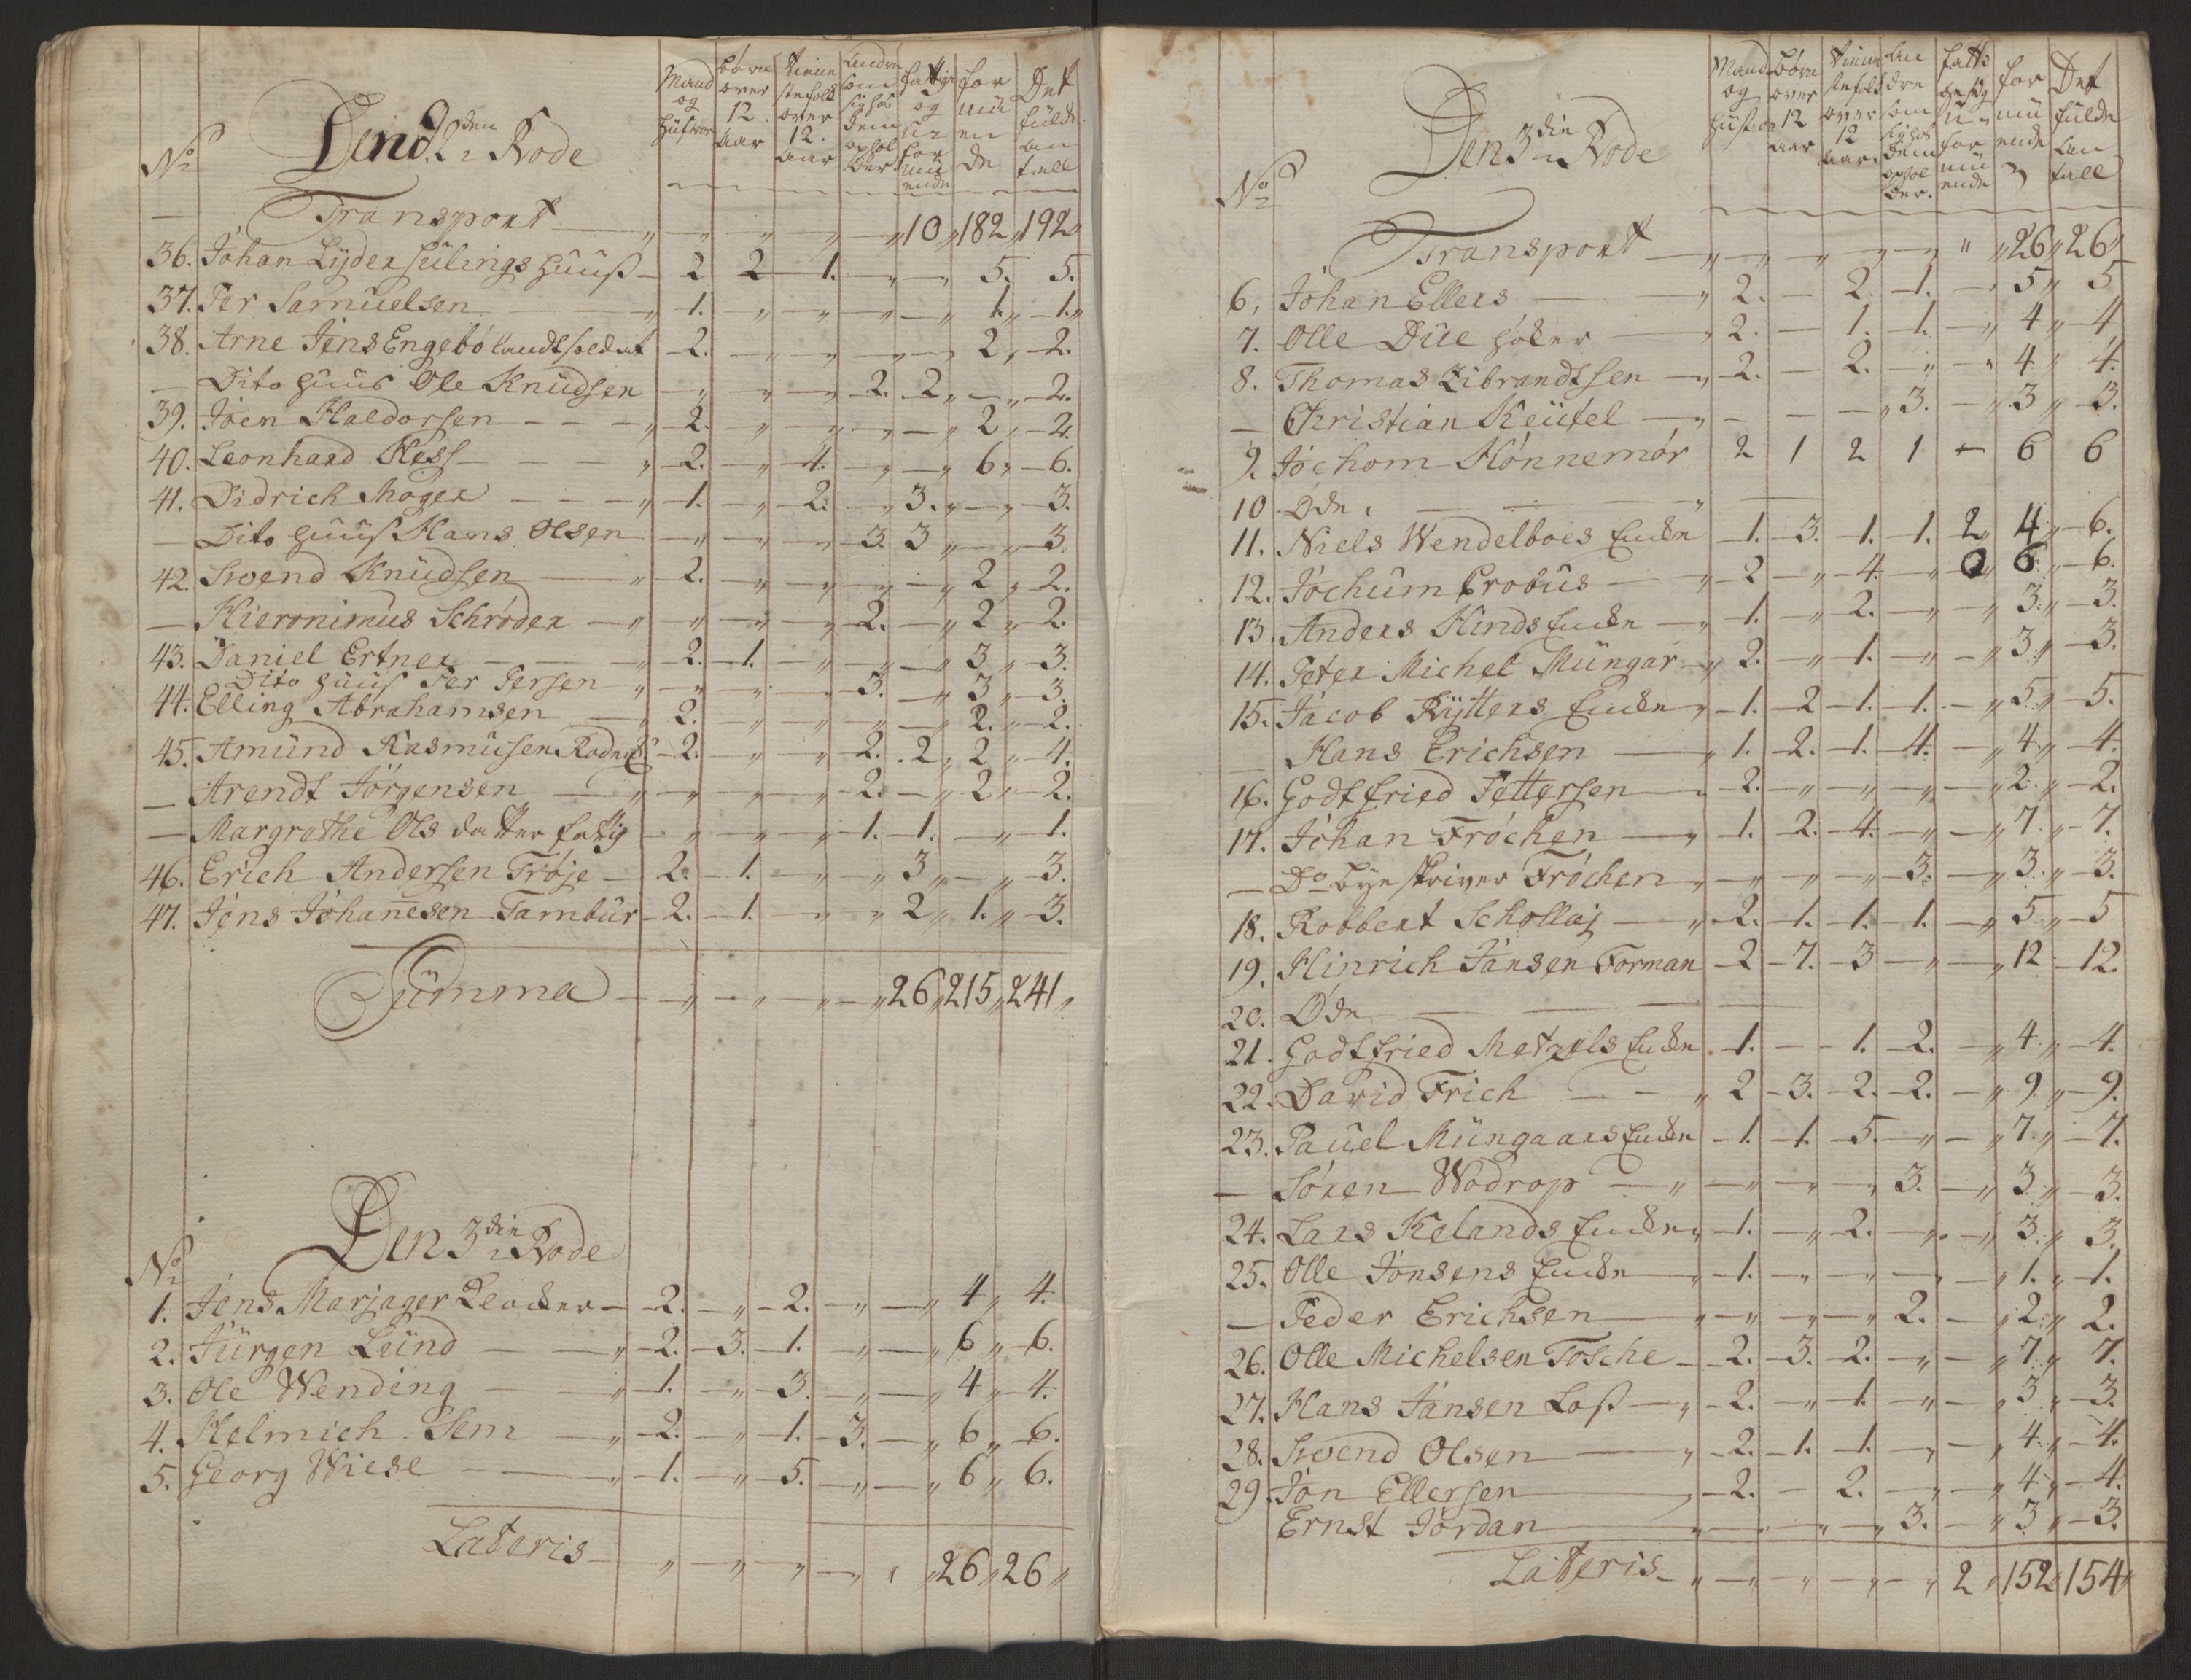 No
Den 2den Rode
Mand og Hustroe
børn over 12 aar
tienneste folk over 12. aar
andre som sig hos dem opholder
fattige og uformuende
formuende
Det fulde antall
— Transport — 10 182 192
36. Johan Lyder Sülings huuß — 2 2 1. 5. 5.
37. Per Samuelsen — 1. 1. 1.
38. Arne Jens Engebø landtsoldat 2. 2. 2.
— Dito huus Ole Knudsen 2. 2 2.
39. Joen Haldorsen 2. 2 2.
40. Leonhard Hess 2. 4. 6 6.
41. Didrich Moger 1. 2. 3. 3.
— Dito huus Hans Olsen 3. 3 3.
42. Swend Knudsen 2. 2 2.
— Hieronimus Schrøder 2. 2 2.
43. Daniel Ertner 2. 1. 3 3.
Dito huus Per Persen 3. 3 3.
44. Elling Abrahamsen 2. 2. 2.
45. Amund Rasmusen 2. 2. 2 2 4.
— Arendt Jørgensen 2. 2 2.
— Margrethe Ols datter fattig 1. 1. 1.
46. Erich Andersen Trøje 2. 1. 3 3.
47. Jens Johanesen Tambur 2. 1. 2 1. 3.
Summa 26 215 241
Den 3die Rode
No
1. Jens Marjager 2. 2. 4 4.
2. Jürgen Lund 2. 3. 1. 6 6.
3. Ole Wending 1. 3. 4 4.
4. Helmich Sem 2. 1. 3. 6 6.
5. Georg Wiese 1. 5. 6 6.
Lateris 26 26
No
Den 3die Rode
Mand og Hustroe
børn over 12 aar
tienneste folk over 12 aar
andre som sig hos dem opholder.
fattige og uformuende
formuende
Det fulde antall
Transport 26 26
6. Johan Ellers 2. 2. 1. 5 5
7. Olle Due høker 2. 1. 1. 4 4
8. Thomas Zibrandtsen 2. 2. 4 4.
— Christian Keütel 3. 3 3.
9. Jochom Hönnemör 2 1 2 1 6 6
10 Øde
11. Niels Wendelboes Encke 1. 3. 1. 1. 2 4 6.
12. Jochum Probus 2 4. 0 6. 6.
13. Anders Kinds Encke 1. 2. 3. 3.
14. Peter Michel Mungar 2. 1. 3. 3.
15. Jacob Rytters Encke 1. 2 1. 1. 5. 5.
— Hans Erichsen 1. 2. 1. 4. 4. 4.
16. Godtfried Pettersen 2. 2. 2.
17. Johan Frøchen 1. 2. 4. 7. 7.
— Do byeskriver Frøchen 3. 3. 3.
18. Robbert Schollaj 2. 1. 1. 1. 5. 5
19. Hinrich Jansen Forman 2 7. 3 12 12.
20. Øde
21. Godtfried Metzels Encke 1. 1. 2. 4. 4.
22. David Frich 2 3. 2. 2. 9. 9.
23. Pauel Müngaars Encke 1. 1. 5. 7. 7.
— Søren Wodrop 3. 3. 3.
24. Lars Kelands Encke 1. 2. 3. 3.
25. Olle Jonsens Encke 1. 1. 1.
— Peder Erichsen 2. 2. 2.
26. Olle Michelsen Tosche 2. 3. 2. 7. 7.
27. Hans Jansen Loß 2. 1. 3. 3.
28. Swend Olsen 2. 1. 1. 4. 4.
29. Jon Ellersen 2. 2. 4 4.
Ernst Jordan 3. 3 3.
Lateris 2 152 154